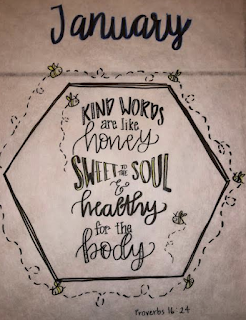 January
KIND WORDS
are like
honey
SWEET TO THE SOUL
&
healthy
for the
body
Proverbs 16:24